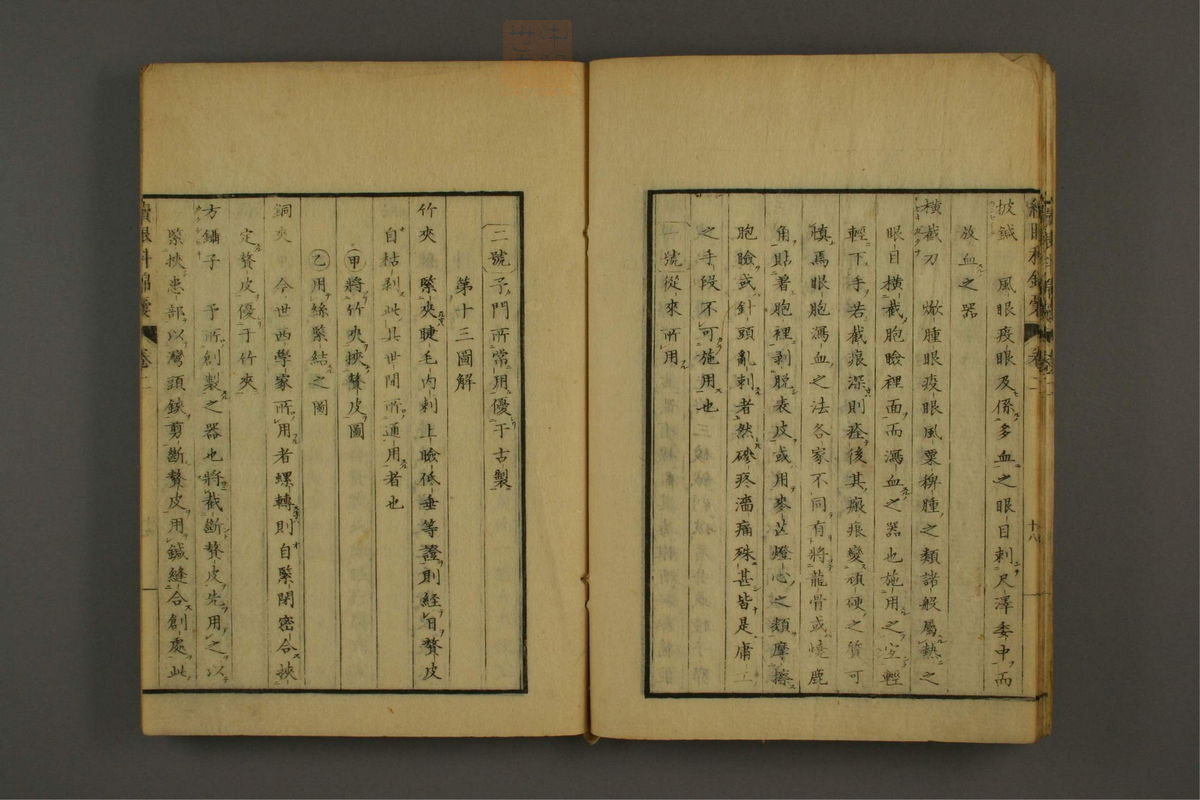 披鍼　風眼疫眼及係多血之眼目刺尺澤委中而
放血之器
横截刀　焮腫眼疫眼風粟椑腫之類諸般屬熱之
眼目横截胞瞼裡面而瀉血之器也施用之宜輕
輕下手若截痕深則痊後其瘢痕變頑硬之質可
慎焉眼胞瀉血之法各家不同有將龍骨或燒鹿
角貼着胞裡剥脱表皮或用麥芒燈心之類摩擦
胞瞼或針頭亂刺者然磣疼濇痛殊甚皆是庸工
之手段不可施用也
一號從來所用
續眼科錦囊　卷二　十八
二號予門所常用優于古製
第十三圖解
竹夾　緊夾睫毛内刺上瞼低垂等證則經日贅皮
自枯剥此具世間所通用者也
甲將竹夾挾贅皮圖
乙用絲緊結之圖
銅夾　今世西學家所用者螺轉則自緊閉密合挾
定贅皮優于竹夾
方鑷子　予所創製之器也將截斷贅皮先用之以
緊挾患部以彎頭鋏剪斷贅皮用鍼縫合創處此
續眼科錦囊　卷二